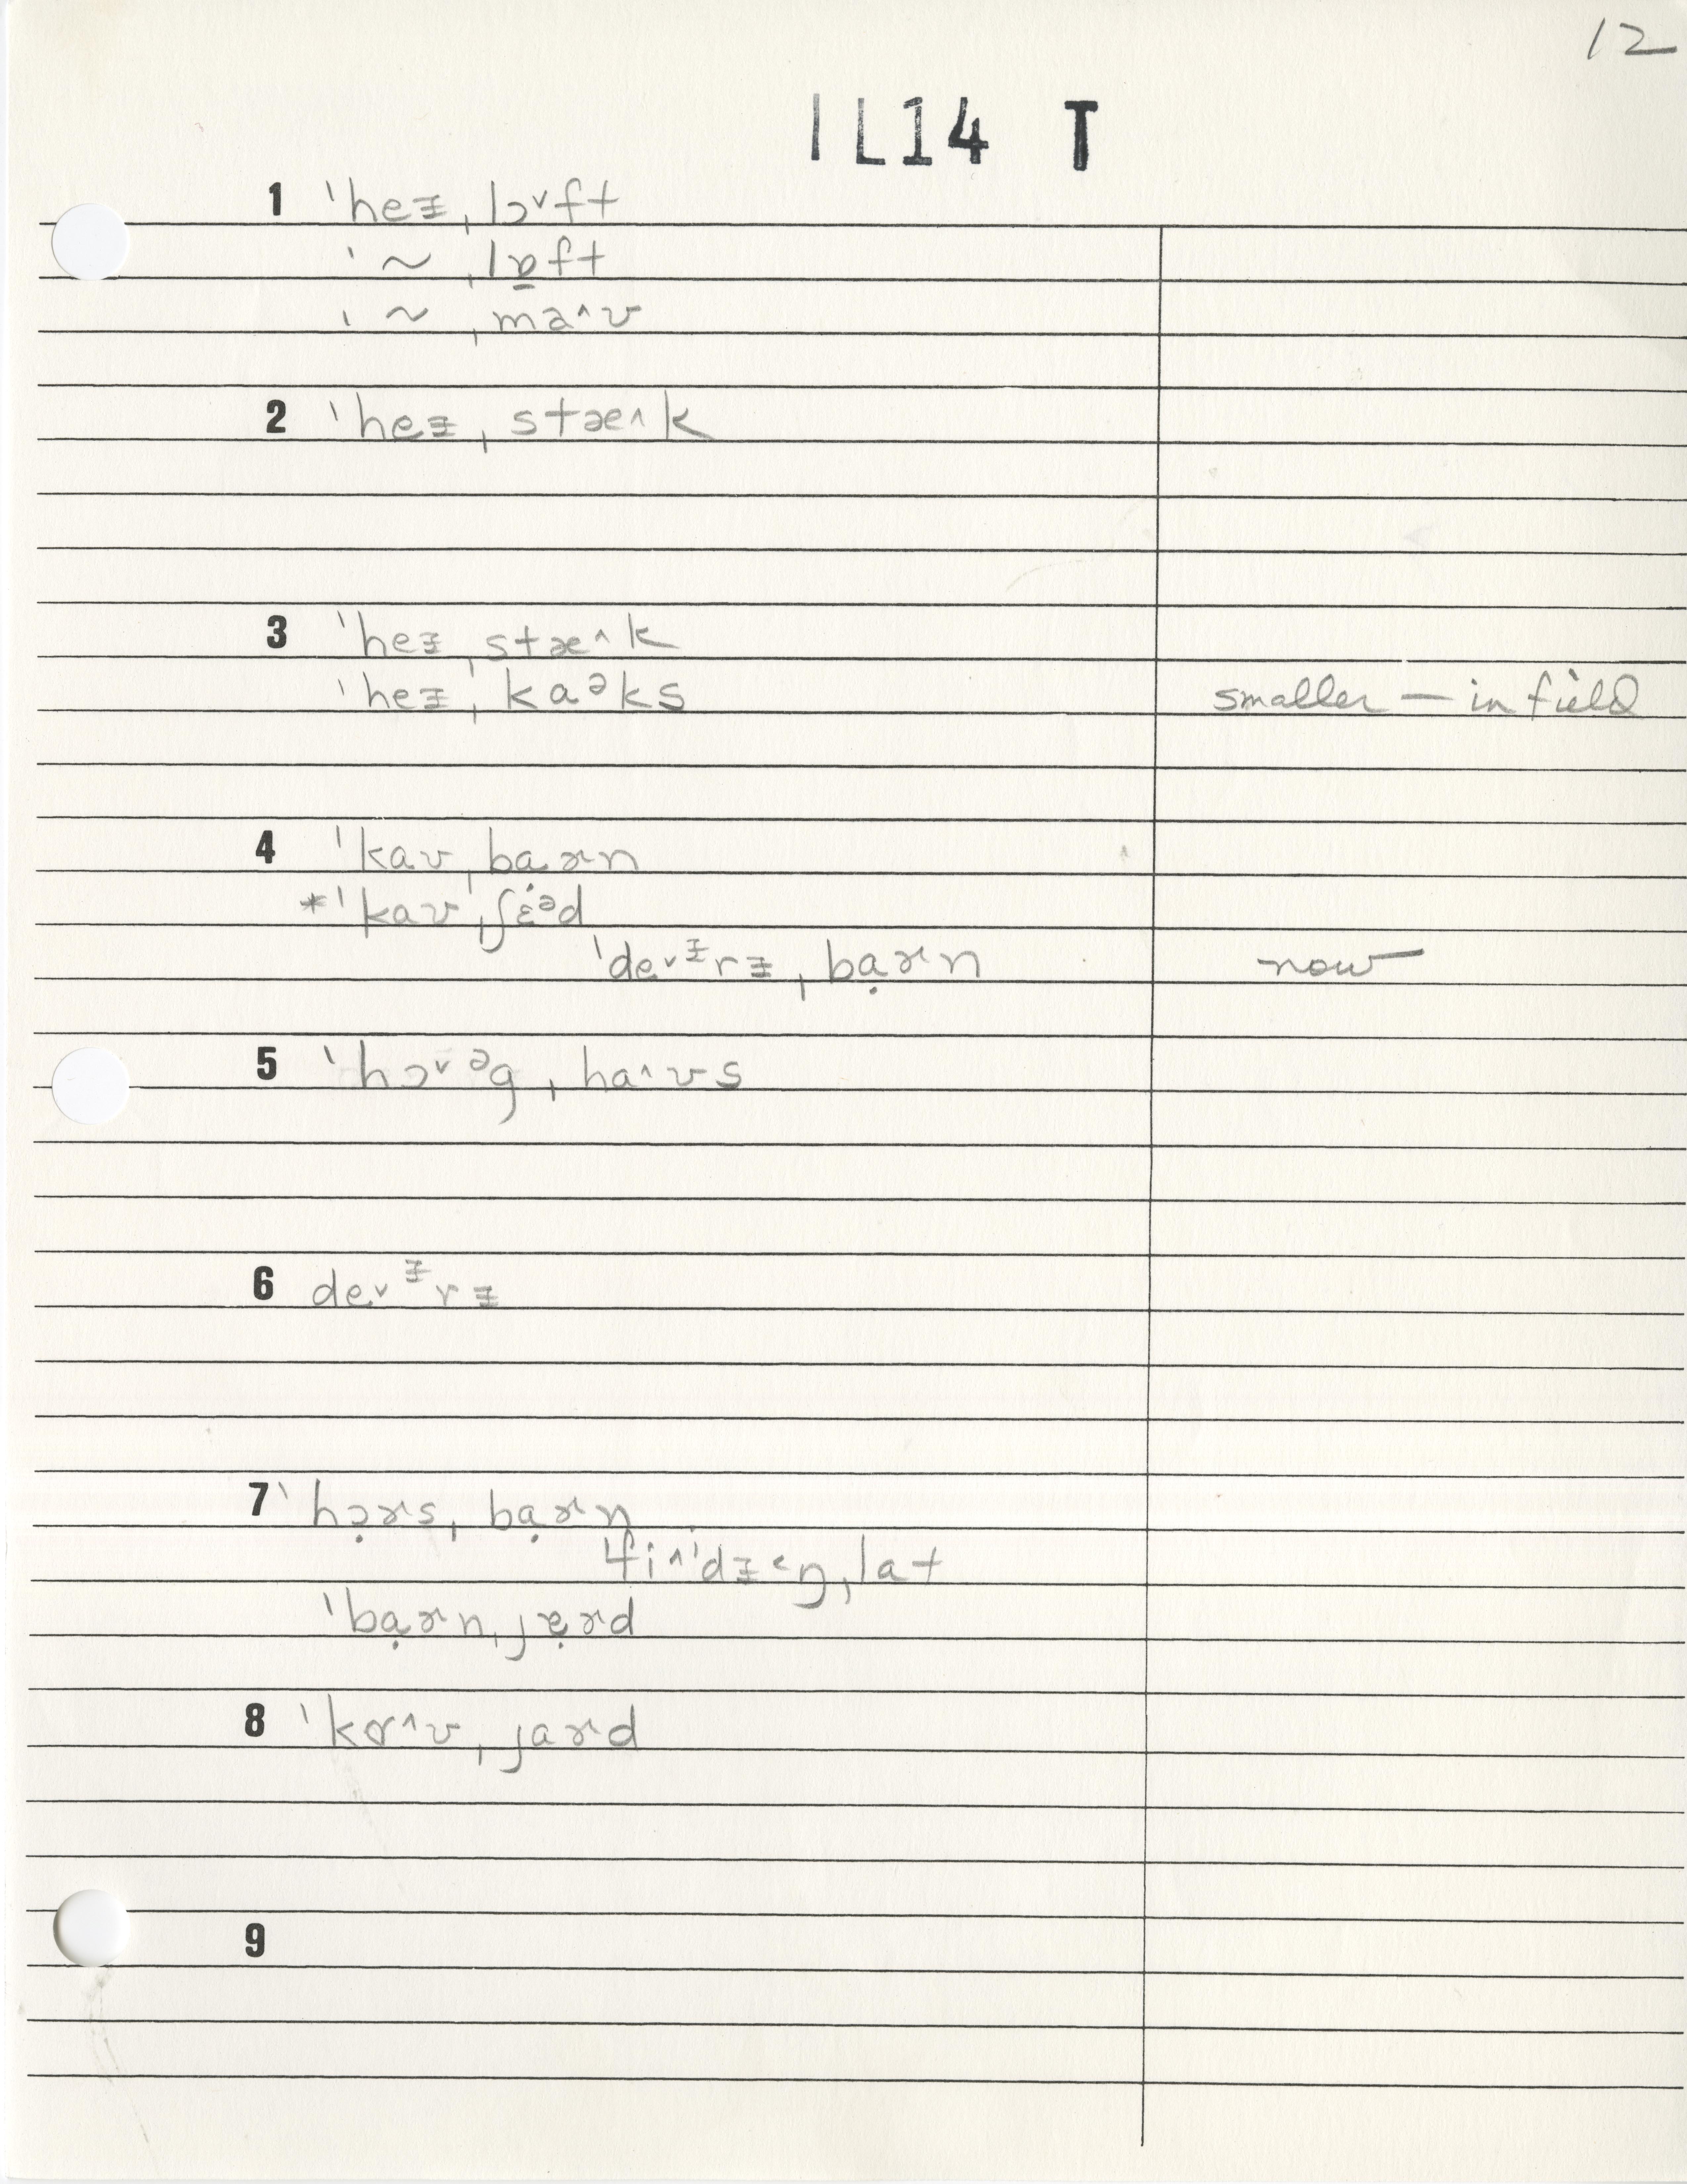 12
IL14 T
1 ˈheᵻˌlɔ˅ft
ˈ~ˌlɒ̠ft
ˈ~ˌma˄ʊ
2 ˈheᵻˌstæ˄k
3 ˈheᵻˌstæ˄k
ˈheᵻˌkaᵊks smaller — in field
4 ˈkaʊˌbaɚn
*ˈkaʊˌʃɛ̇ᵊd
ˈde˅ᵻrᵻˌbạɚn now
5 ˈhɔ˅ᵊgˌha˄ʊs
6 de˅ᵻrᵻ
7 ˈhɔ̣ɚsˌbạɚn
ˈfi˄ˈdᵻ˂ŋˌlat
ˈbạɚnˌjɐ̣ɚd
8 ˈkɑ˄ʊˌjaɚd
9